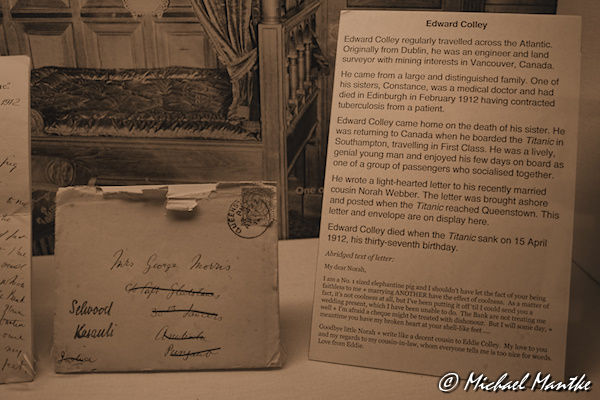 Edward Colley
Edward Colley regularly travelled across the Atlantic.
Originally from Dublin, he was an engineer and land
surveyor with mining interests in Vancouver, Canada.
He came from a large and distinguished family. One of
his sisters, Constance, was a medical doctor and had
died in Edinburgh in February 1912 having contracted
tuberculosis from a patient.
Edward Colley came home on the death of his sister. He
was returning to Canada when he boarded the Titanic in
Southampton, travelling in First Class. He was a lively,
genial young man and enjoyed his few days on board as
one of a group of passengers who socialised together.
He wrote a light-hearted letter to his recently married
cousin Norah Webber. The letter was brought ashore
and posted when the Titanic reached Queenstown. This
letter and envelope are on display here.
Edward Colley died when the Titanic sank on 15 April
1912, his thirty-seventh birthday.
Abridged text of letter:
My dear Norah,
I am a No. 1 sized elephantine pig and I shouldn't have let the fact of your being
faithless to me + marrying ANOTHER have the effect of coolness. As a matter of
fact, it's not coolness at all, but I've been putting it off til I could send you a
wedding present, which I have been unable to do. The Bank are not treating me
well + I'm afraid a cheque might be treated with dishonour. But I will some day, +
meantime you have my broken heart at your shell-like feet ....
Goodbye little Norah + write like a decent cousin to Eddie Colley. My love to you
and my regards to my cousin-in-law, whom everyone tells me is too nice for words.
Love from Eddie.
Mrs George Morris
Selwood
Kasauli
1912
© Michael Mantke